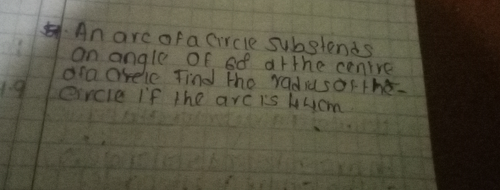 An arc of a circle substends
an angle of 60 at the centre
of a circle Find the radius of the
1.9
circle if the arc is 44cm